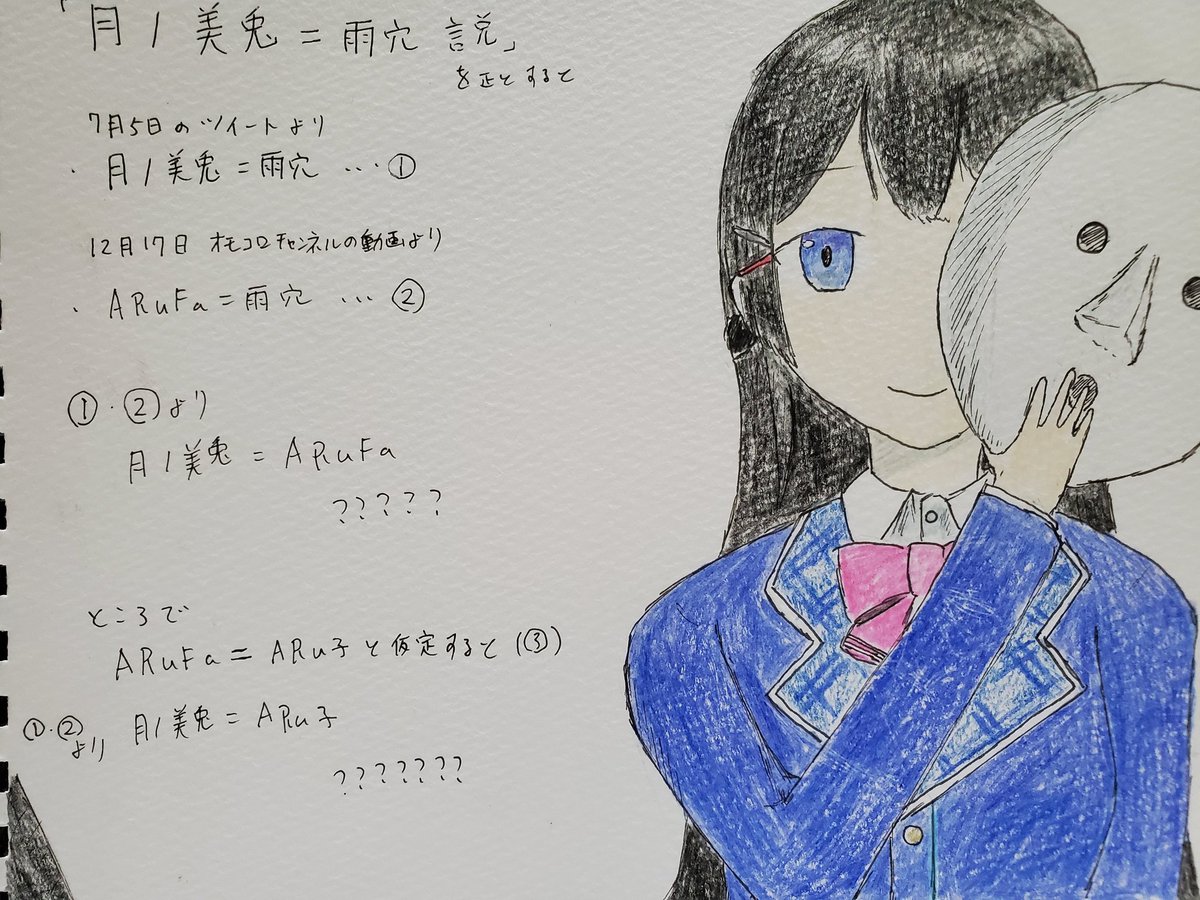 「月ノ美兎=雨穴 説」
を正とすると
7月5日のツイートより
・月ノ美兎=雨穴 … ①
12月17日 オモコロチャンネルの動画より
・ARuFa=雨穴 … ②
①・②より
月ノ美兎=ARuFa
?????
ところで
ARuFa=ARu子と仮定すると(③)
①・②より 月ノ美兎=ARu子
???????